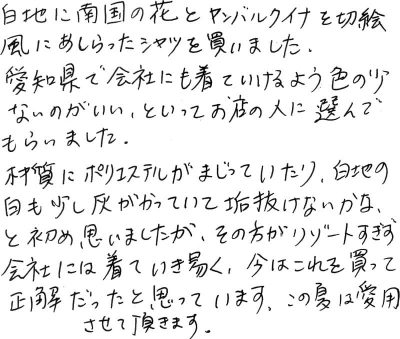 白地に南国の花とヤンバルクイナを切絵
風にあしらったシャツを買いました.
愛知県で会社にも着ていけるよう色の少
ないのがいい、といってお店の人に選んで
もらいました.
材質にポリエステルがまじっていたり、白地の
白も少し灰がかっていて垢抜けないかな、
と初め思いましたが、その方がリゾートすぎず
会社には着ていき易く、今はこれを買って
正解だったと思っています、この夏は愛用
させて頂きます.